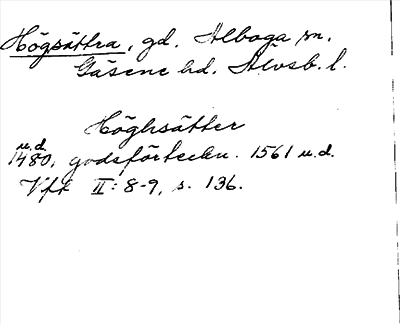 Högsättra, gd. Alboga sn.
Gäsene hd. Älvsb. l.
Höghsätter
u.d.
1480, godsförteckn. 1561 u.d.
Vft II: 8-9, s. 136.